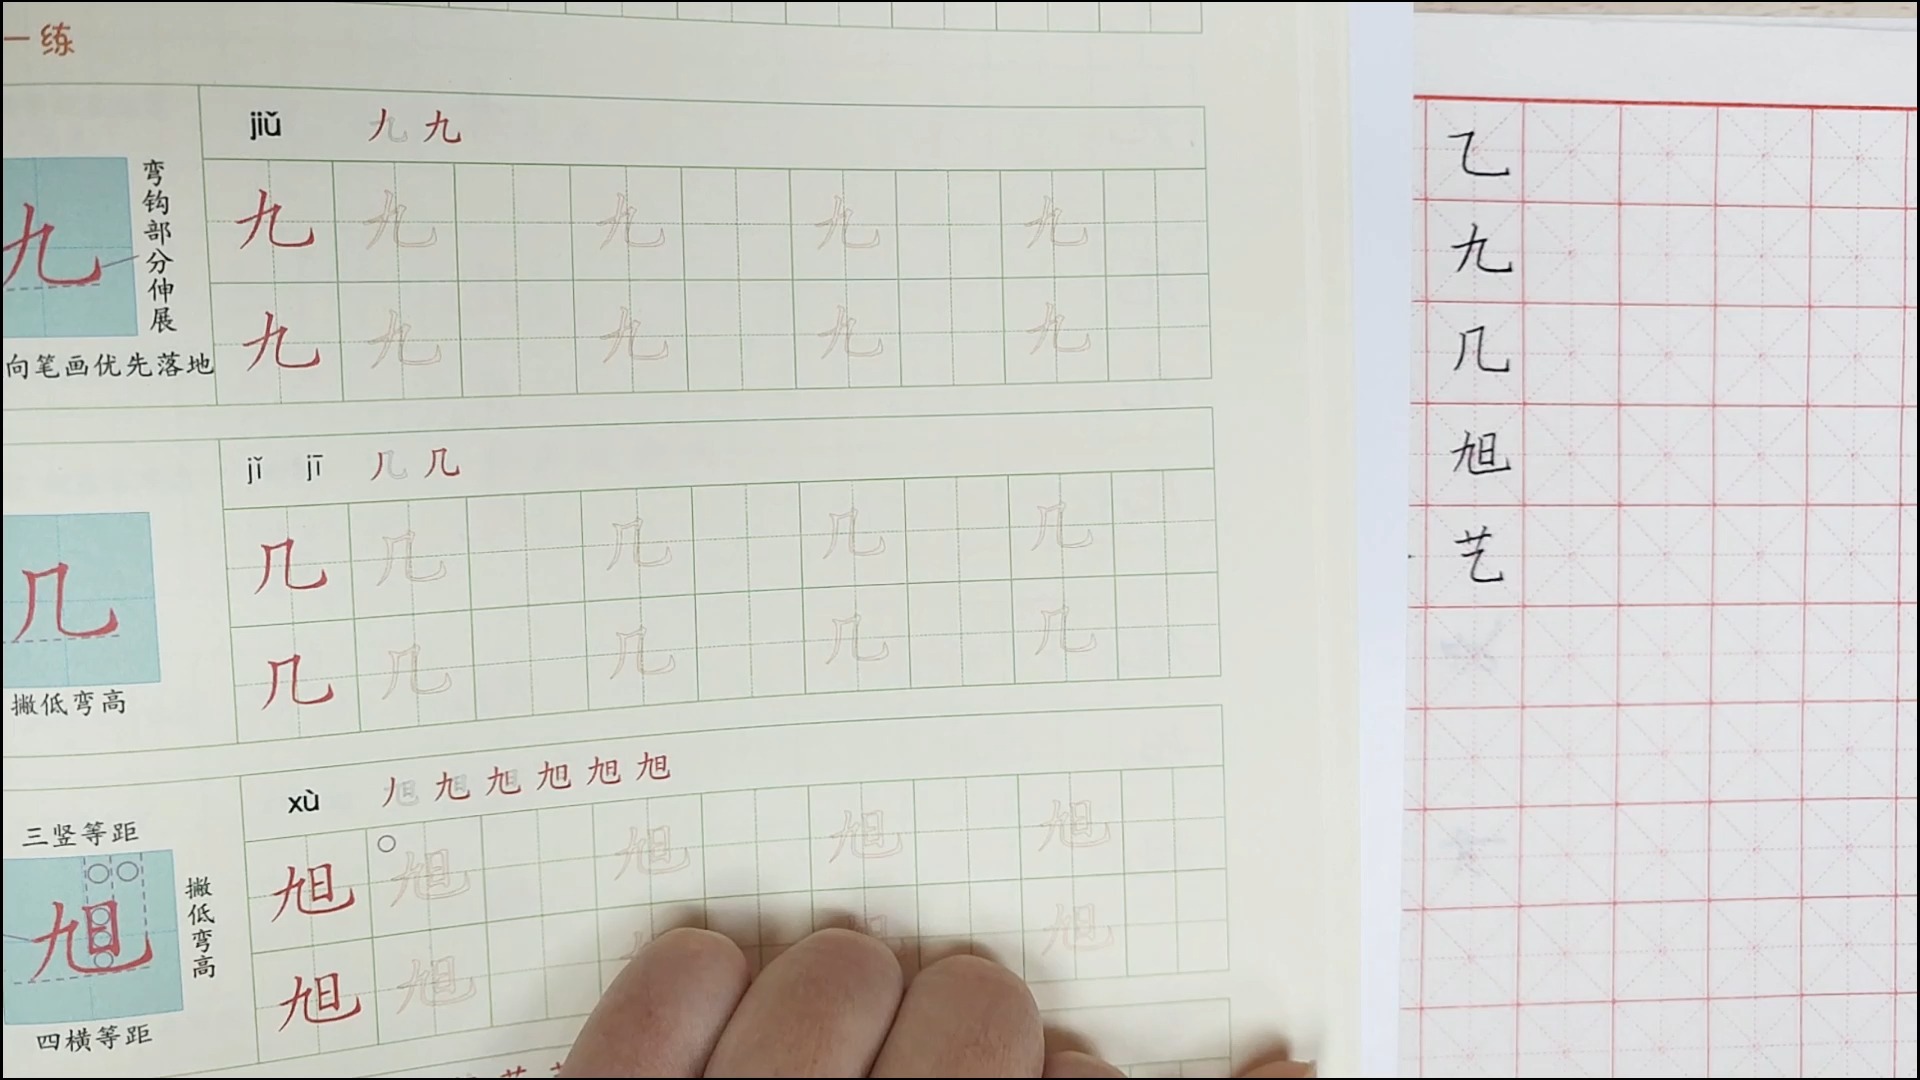 一练
jiǔ 九 九
弯钩部分伸展
九
九 九 九 九 九
九 九 九 九 九
向笔画优先落地
jǐ jī 几 几
几
几 几 几 几 几
几 几 几 几 几
撇低弯高
xù 旭 旭 旭 旭 旭 旭
三竖等距
旭
撇低弯高
旭 旭 旭 旭 旭
旭 旭 旭 旭
四横等距
乙
九
几
旭
艺